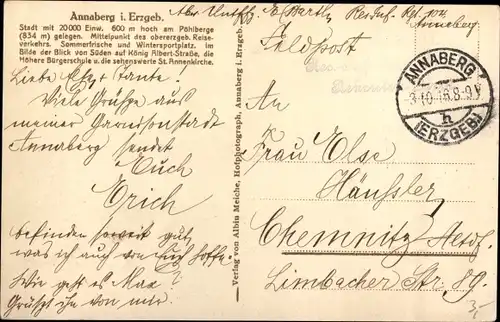 Annaberg i. Erzgeb.
Stadt mit 20 000 Einw. 600 m hoch am Pöhlberge
(834 m) gelegen. Mittelpunkt des oberergeb. Reise-
verkehrs. Sommerfrische und Wintersportplatz. im
Bilde der Blick von Süden auf König Albert-Straße, die
Höhere Bürgerschule u. die sehenswerte St. Annenkirche.
Liebe Else + Tante!
Viele Grüße aus
meiner Garnisonstadt
Annaberg sendet
Euch
Erich
befinden soweit gut,
was ich auch von Euch hoffe.
Wie geht es Max?
Grüßt ihn von mir.
Verlag von Albin Meiche, Hofphotograph, Annaberg i. Erzgeb.
Abs. Untffz. E. Barth, Res. Inf. Rgt. 102
Annaberg
Feldpost
ANNABERG
-3.10.16.8-9V
h
(ERZGEB)
An
Frau Else
Häußler
Chemnitz
Limbacher Str. 89.
3,-